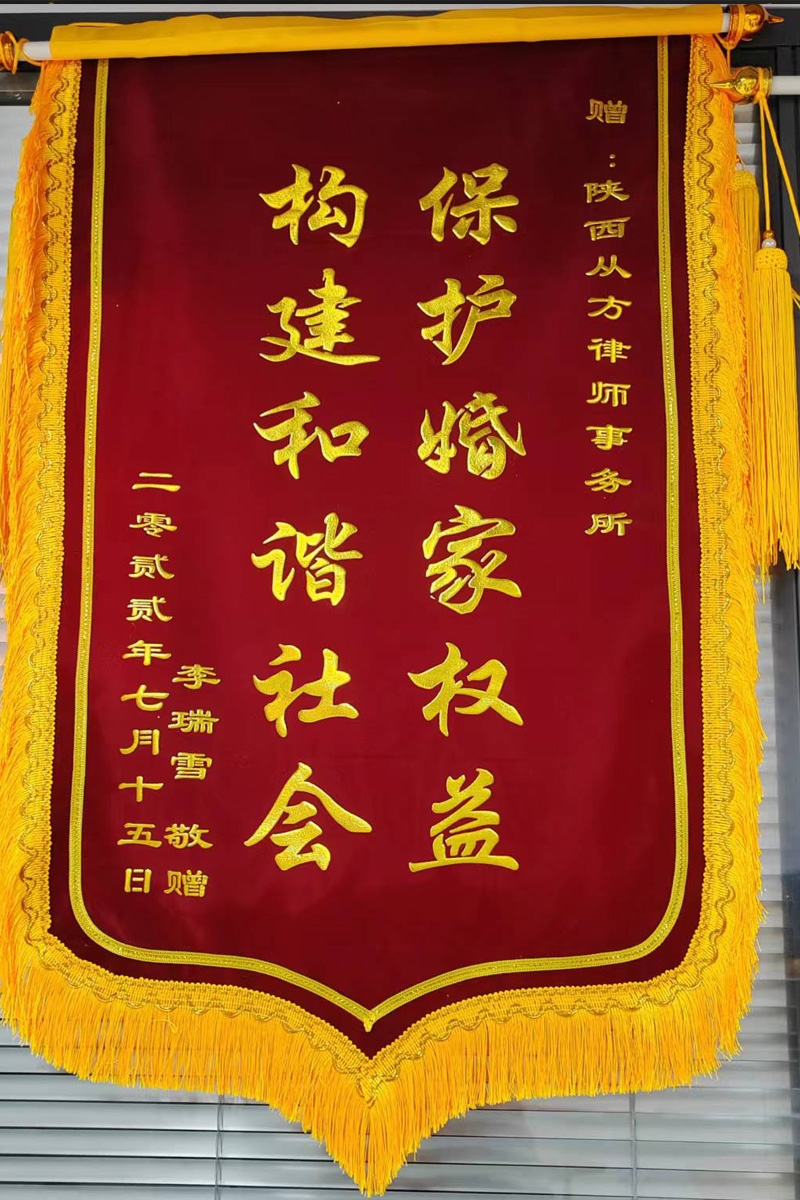 赠：陕西从方律师事务所
保护婚家权益
构建和谐社会
李瑞雪 敬赠
二零贰贰年七月十五日